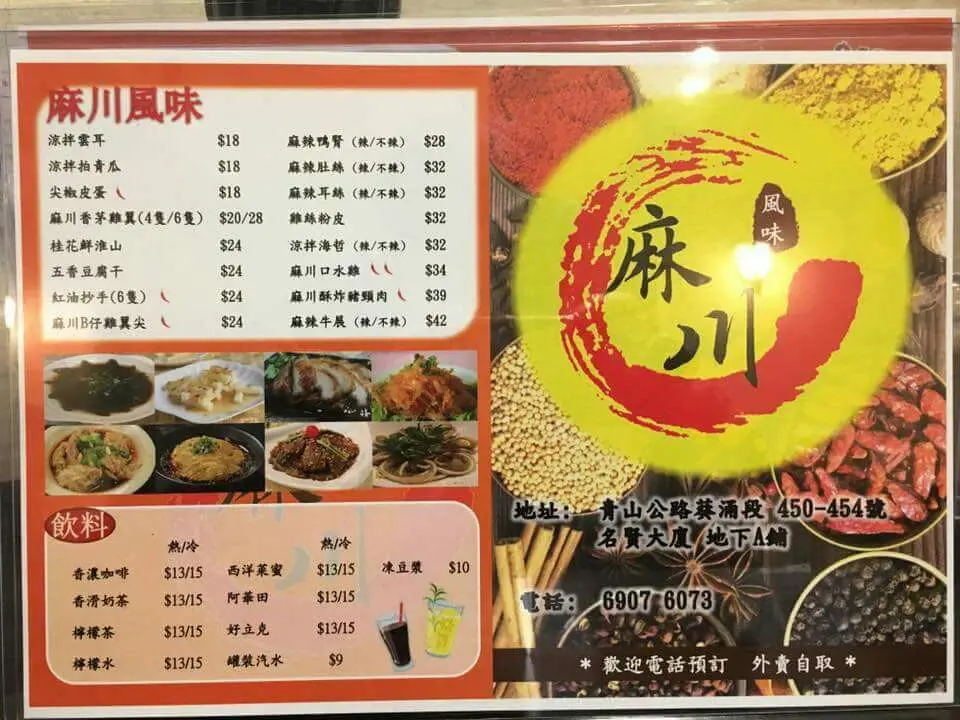 麻川風味
涼拌雲耳 $18
涼拌拍青瓜 $18
尖椒皮蛋 $18
麻川香茅雞翼(4隻/6隻) $20/28
桂花鮮淮山 $24
五香豆腐干 $24
紅油抄手(6隻) $24
麻川B仔雞翼尖 $24
麻辣鴨腎 (辣/不辣) $28
麻辣肚絲 (辣/不辣) $32
麻辣耳絲 (辣/不辣) $32
雞絲粉皮 $32
涼拌海哲 (辣/不辣) $32
麻川口水雞 $34
麻川酥炸豬頸肉 $39
麻辣牛展 (辣/不辣) $42
飲料
熱/冷
香濃咖啡 $13/15
香滑奶茶 $13/15
檸檬茶 $13/15
檸檬水 $13/15
熱/冷
西洋菜蜜 $13/15
阿華田 $13/15
好立克 $13/15
罐裝汽水 $9
凍豆漿 $10
麻川
風味
麻川
地址: 青山公路葵涌段 450-454號
名賢大廈 地下A鋪
電話: 6907 6073
* 歡迎電話預訂 外賣自取 *